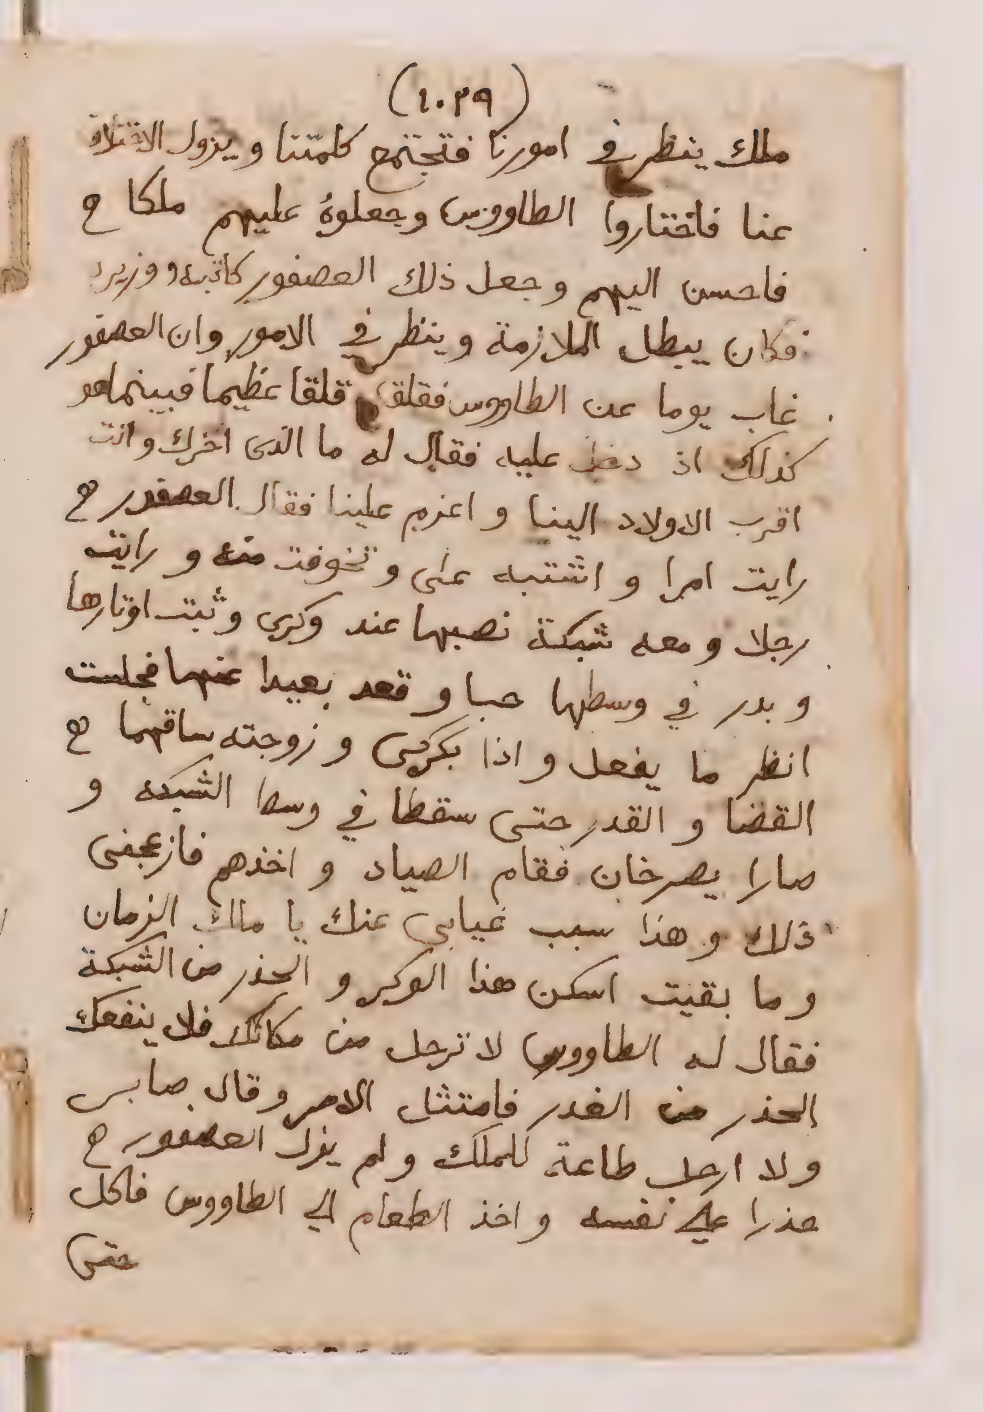 (١٠٣٩)
ملك ينظر في امورنا فتجتمع كلمتنا و يزول الاختلاف
عنا فاختاروا الطاووس وجعلوهُ عليهم ملكا ح
فاحسن اليهم وجعل ذلك العصفور كاتبه ووزيره
فكان يبطل الملازمة و ينظر في الامور وان العصفور
غاب يوما عن الطاووس فقلق قلقا عظيما فبينما هو
كذلك اذ دخل عليه فقال له ما الذى اخرك وانت
اقرب الاولاد الينا و اعزم علينا فقال العصفور ح
رايت امرا و اشتبه على و تخوفت منه و رايت
رجلا و معه شبكة نصبها عند وكرى و ثبت اوتارها
و بدر في وسطها حبا و قعد بعيدا عنها فجلست
انظر ما يفعل و اذا بكركى و زوجته ساقهما ح
القضا و القدر حتى سقطا في وسط الشبكه و
صارا يصرخان فقام الصياد و اخذهم فازعجنى
ذلك و هذا سبب غيابى عنك يا مالك الزمان
و ما بقيت اسكن هذا الوكر و الحذر من الشبكة
فقال له الطاووس لا ترحل من مكانك فلا ينفعك
الحذر من القدر فامتثل الامر وقال صابر
ولا ارحل طاعة للملك و لم يزل العصفور ح
حذرا على نفسه و اخذ الطعام الى الطاووس فاكل
حتى